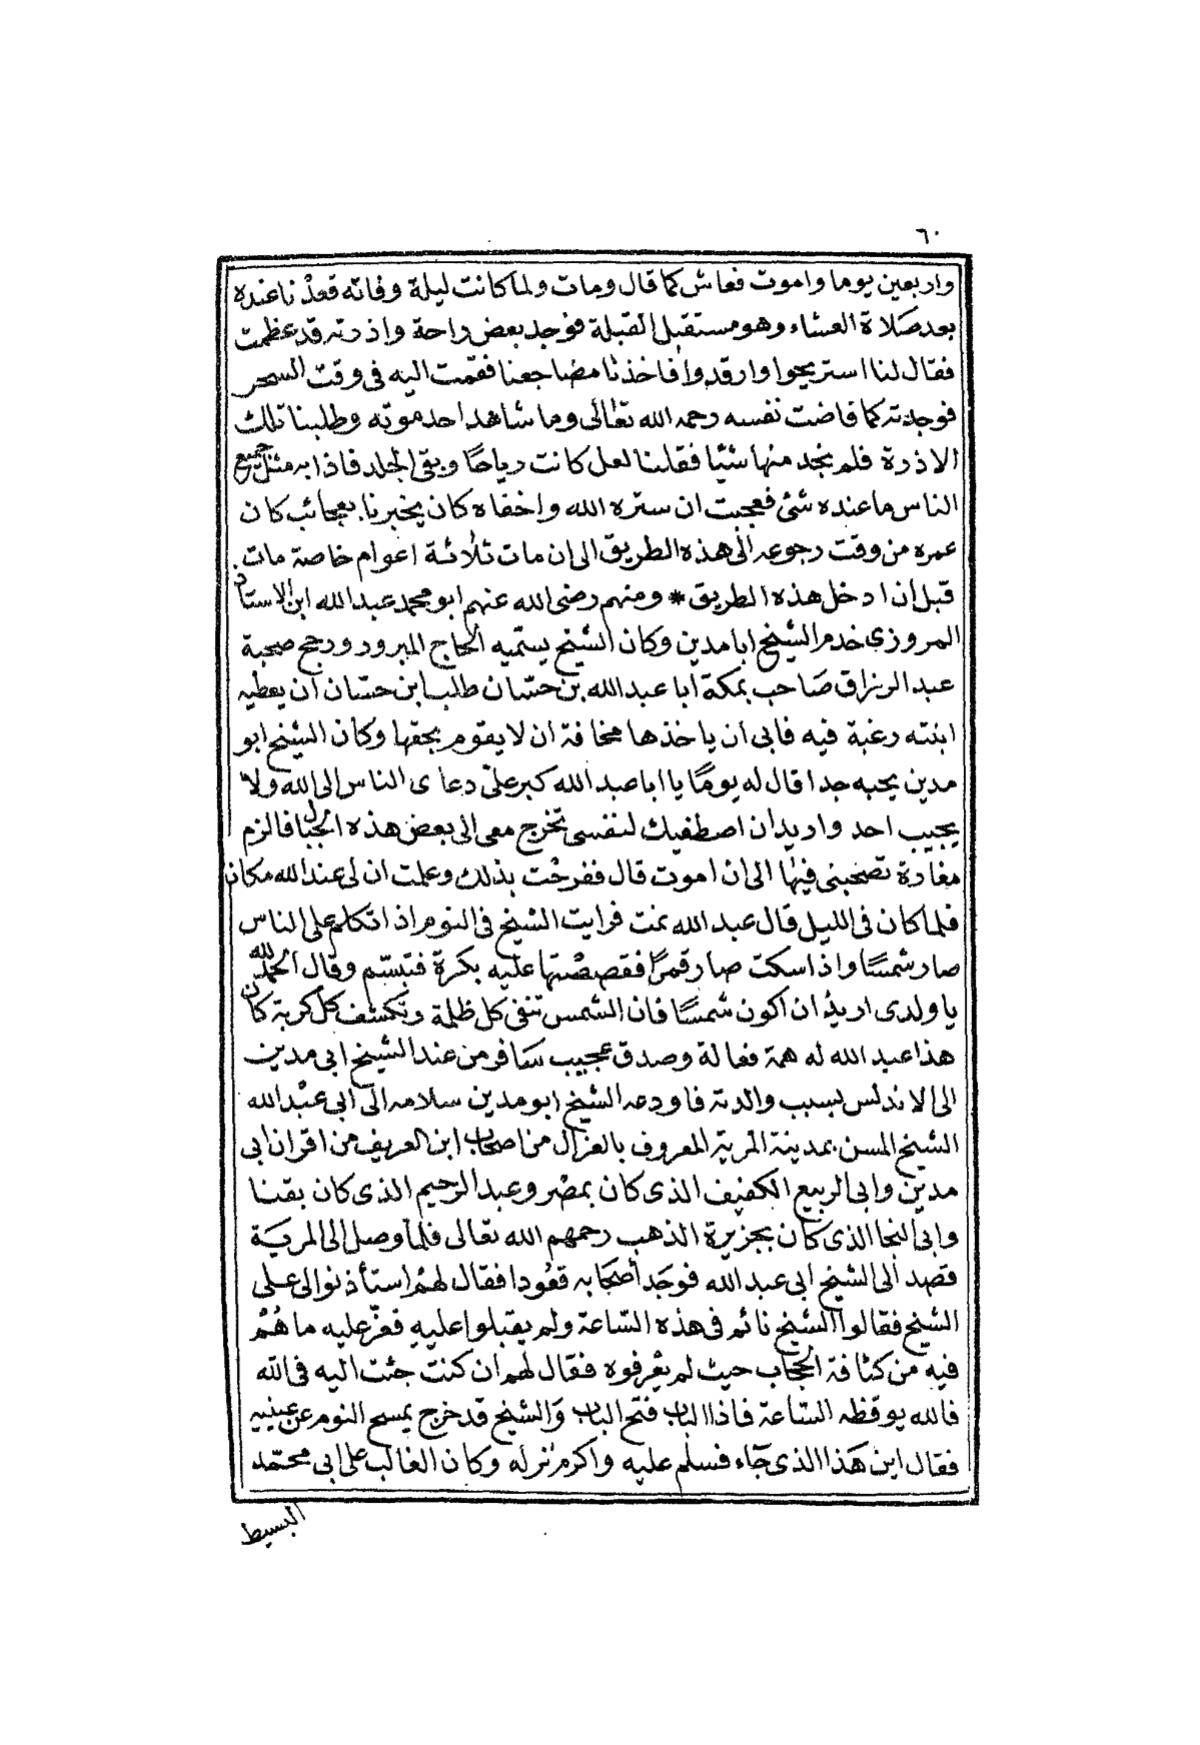 ٦٠
واربعين يوما واموت فعاش كما قال ومات ولما كانت ليلة وفاته قعدنا عنده
بعد صلاة العشاء وهو مستقبل القبلة فوجد بعض راحة واذرته قد عظمت
فقال لنا استريحوا وارقدوا فاخذنا مضاجعنا فقمت اليه فى وقت السحر
فوجدته كما فاضت نفسه رحمه الله تعالى وما شاهد احد موته وطلبنا تلك
الاذرة فلم نجد منها شيئا فقلنا لعل كانت رياحا وبقى الجلد فاذا به مثل جميع
الناس ما عنده شئ فعجبت ان ستره الله واخفاه كان يخبرنا بعجائب كان
عمره من وقت رجوعه الى هذه الطريق الى ان مات ثلاثة اعوام خاصة مات
قبل ان ادخل هذه الطريق * ومنهم رضى الله عنهم ابو محمد عبد الله ابن الاستاد
المروزى خدم الشيخ ابا مدين وكان الشيخ يسمّيه الحاج المبرور ورجح صحبة
عبد الرزاق صاحب بمكة ابا عبد الله بن حسّان طلب ابن حسّان ان يعطيه
ابنته رغبة فيه فابى ان ياخذها مخافة ان لا يقوم بحقها وكان الشيخ ابو
مدين يحبه جدا قال له يومًا يا ابا عبد الله كبر علىّ دعاى الناس الى الله ولا
يجيب احد واريد ان اصطفيك لنفسى تخرج معى الى بعض هذه الجبال فالزم
مغارة تصحبنى فيها الى ان اموت قال ففرحت بذلك وعلمت ان لى عند الله مكان
فلما كان فى الليل قال عبد الله نمت فرايت الشيخ فى النوم اذا تكلم على الناس
صار شمسًا واذا سكت صار قمرًا فقصصتها عليه بكرة فتبسّم وقال الحمد لله
يا ولدى اريد ان اكون شمسًا فان الشمس تنفى كل ظلمة وتكشف كل كربة كان
هذا عبد الله له همة فعالة وصدق عجيب سافر من عند الشيخ ابى مدين
الى الاندلس بسبب والدته فاودعه الشيخ ابو مدين سلامه الى ابى عبد الله
الشيخ المسن بمدينة المرية المعروف بالغزال من اصحاب ابن العريف من اقران ابى
مدين وابى الربيع الكفيف الذى كان بمصر وعبد الرحيم الذى كان بقنا
وابى النجا الذى كان بجزيرة الذهب رحمهم الله تعالى فلما وصل الى المرية
قصد الى الشيخ ابى عبد الله فوجد أصحابه قعُودا فقال لهم استأذنوا لى على
الشيخ فقالوا الشيخ نائم فى هذه السّاعة ولم يقبلوا عليه فعزّ عليه ما هُمْ
فيه من كثافة الحجاب حيث لم يعْرفوه فقال لهم ان كنت جئت اليه فى الله
فالله يوقظه السّاعة فاذا الباب فتح الباب وَالشيخ قد خرج يمسح النوم عن عينيه
فقال اين هَذا الذى جَاء فسلم عليه واكرم نزله وكان الغالب على ابى محمّد
البسيط